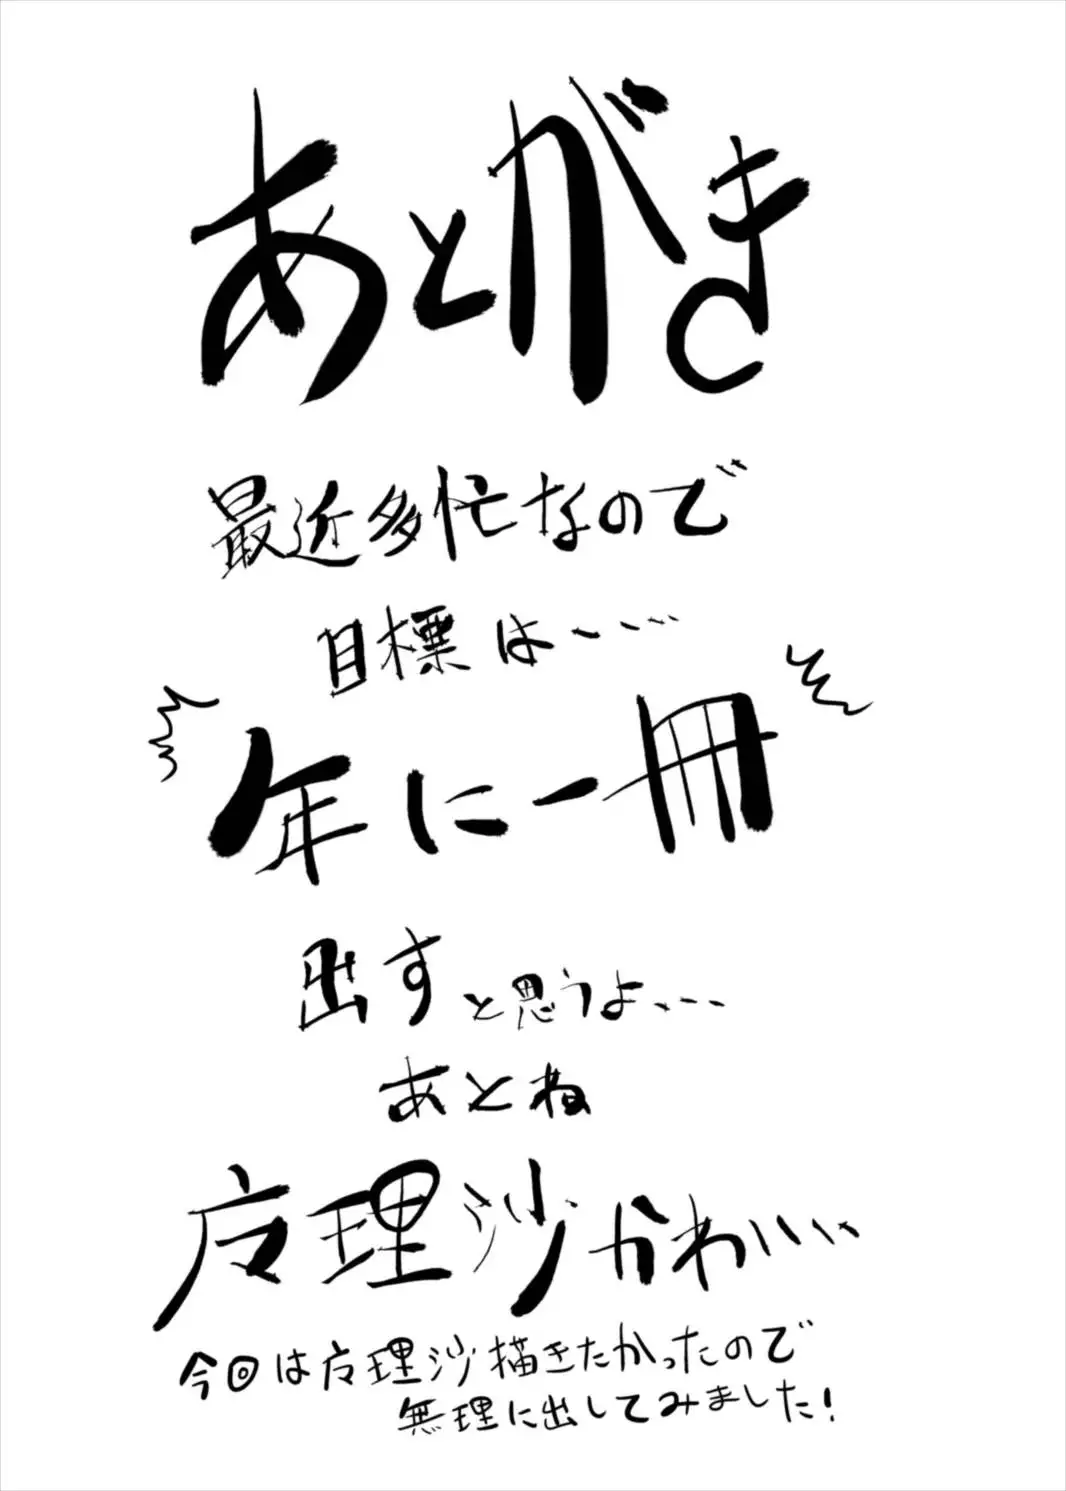 あとがき
最近多忙なので
目標は・・・・・
年に一冊
出すと思うよ、・・・
あとね
广マ理沙かわいいい
今回は广マ理沙描きたかったので
無理に出してみました!